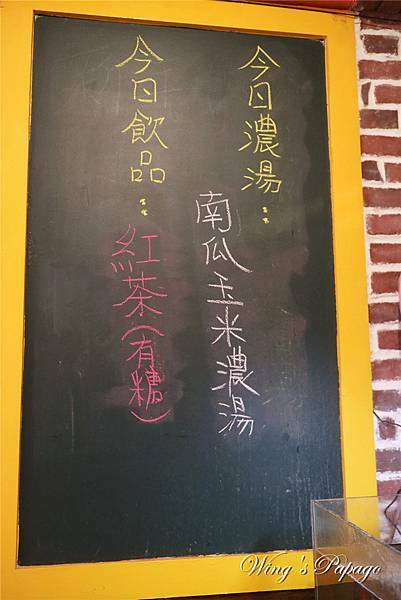 今日濃湯：
南瓜玉米濃湯
今日飲品：
紅茶(有糖)
Wing's Papago